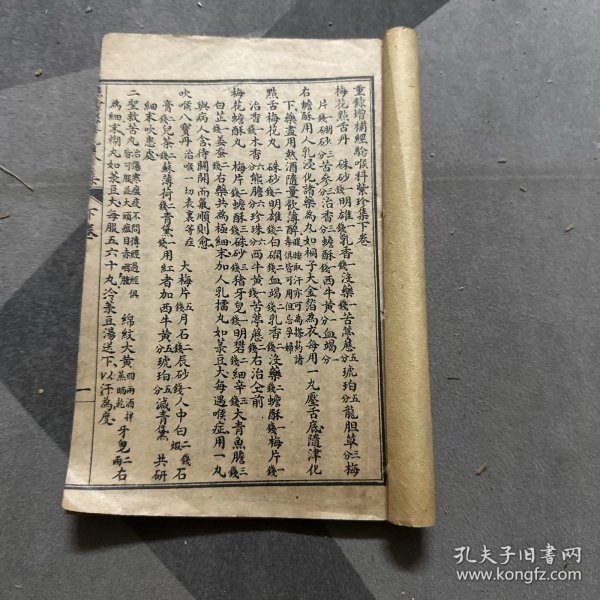 重錄增補經驗喉科紫珍集下卷
梅花點舌丹 硃砂錢一明雄錢一乳香錢一沒藥錢一苦葶藶五分琥珀五分龍胆草三分梅
片錢一硼砂三分苦參三分治香二分蟾酥錢一西牛黃一分血竭一分
右蟾酥用人乳浸化諸藥為丸如桐子大金箔為衣每用一丸壓舌底隨津化
下藥盡用熱酒隨量飲薄醉
點舌梅花丸 硃砂錢一明雄錢一白礀錢一血竭錢一乳香錢一沒藥錢一蟾酥錢一梅片錢一
治香錢一木香六分熊膽六分珍珠六分西牛黃錢一苦葶藶錢一右治仝前
梅花蟾酥丸 梅片錢一蟾酥錢二硃砂錢三猪牙皂錢一明礬錢一細辛錢三大青魚膽錢三
白芷錢一姜蚕錢二右藥共為極細末加人乳擂丸如菉豆大每遇喉症用一丸
與病人含待關開而氣順則愈
吹喉八寶丹 治喉一切表裏等症 大梅片五錢月石五錢辰砂錢一人中白煅二錢石
膏錢二兒茶二錢蘇薄荷錢一青黛錢一用紅者加西牛黃五分琥珀五分減青黛 共研
細末吹患處
二聖救苦丸 綿紋大黃四兩酒拌蒸晒乾牙皂二兩右
為細末糊丸如菉豆大每服五六十丸冷菉豆湯送下以汗為度
下卷
一
孔夫子旧书网
www.kongfz.com